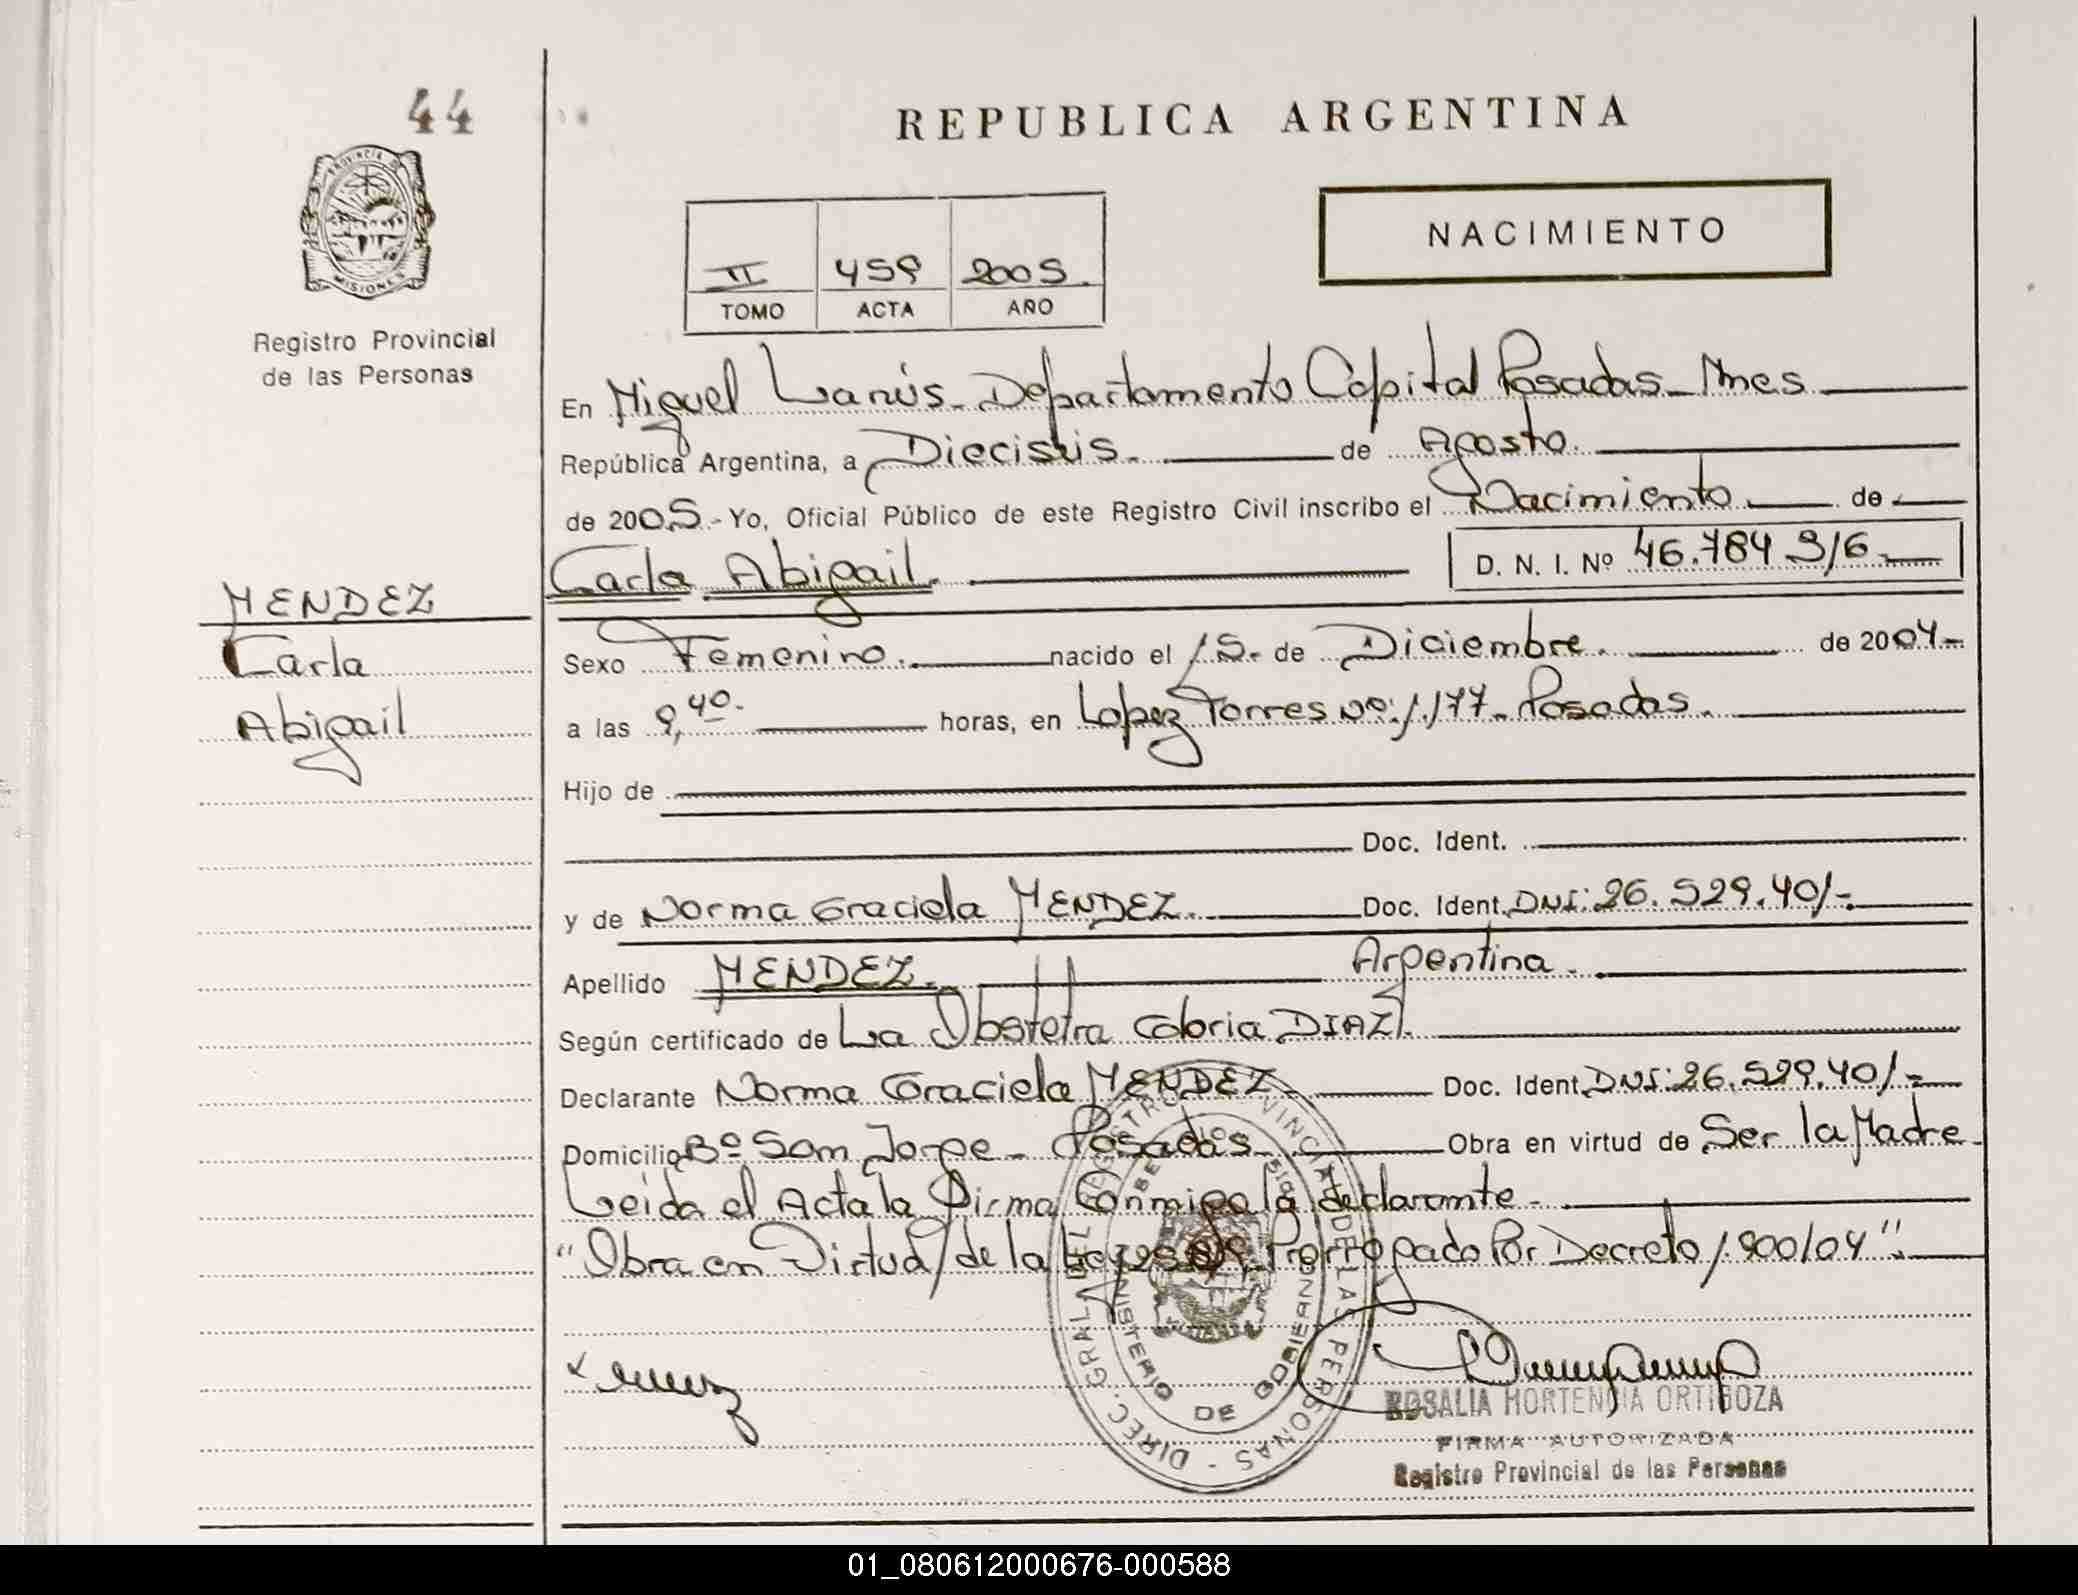 44
REPUBLICA ARGENTINA
PROVINCIA DE
MISIONES
Registro Provincial
de las Personas
NACIMIENTO
II 459 2005.
TOMO ACTA AÑO
En Miguel Lanús - Departamento Capital Posadas - Mnes
República Argentina, a Dieciseis. de Agosto.
de 2005.- Yo, Oficial Público de este Registro Civil inscribo el Nacimiento de
Carla Abigail. D. N. I. Nº 46.784 916.
MENDEZ
Carla
Abigail
Sexo Femenino. nacido el 15. de Diciembre. de 2004.-
a las 9,40. horas, en Lopez Torres Nº: 1.177 - Posadas.
Hijo de
Doc. Ident.
y de Norma Graciela MENDEZ. Doc. Ident. DNI: 26.529.401-.
Apellido MENDEZ. Argentina.
Según certificado de La Obstetra DIAZ.
Declarante Norma Graciela MENDEZ Doc. Ident. DNI: 26.529.401-
Domicilio Bº San Jorge - Posadas. Obra en virtud de Ser la Madre
Leida el Acta la Firma Conmigo la declarante.
"Obra en Virtud de la Prorrogado Por Decreto 1.900/04".
DIREC. GRAL. DEL REGISTRO PROVINCIAL DE LAS PERSONAS
MINISTERIO DE GOBIERNO
ROSALIA HORTENCIA ORTIGOZA
FIRMA AUTORIZADA
Registro Provincial de las Personas
01_080612000676-000588